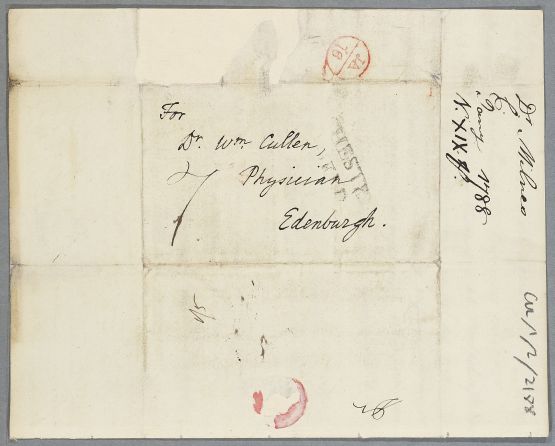 For
Dr. Wm. Cullen,
Physician
Edenburgh.
7
JA
16
Dr. Milnes
Jany. 1788
N. XIX.
CUL/1/2/2158